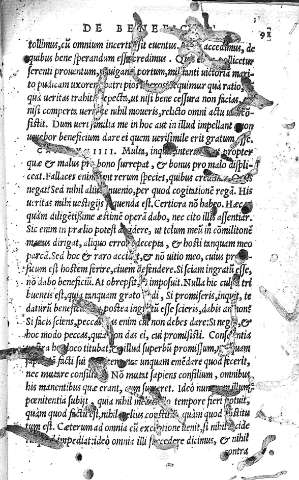 DE BENEF
92
tollimus, cū omnium incert sit euentus. accedimus, de
quibus bene sperandum esse credimus. Quis pollicetur
serenti prouentum, nauiganti portum, militanti victoriā mari
to pudicam vxorem, patri pios sequimur quà ratio,
quà veritas trahit. expecta, ut nisi bene cessura non facias,
nisi comperta ueritate nihil moueris, relicto omni actu con
sistis. Dum uerisimilia me in hoc aut in illud impellant non
verebor beneficium dare ei quem uerisimile erit gratum esse.
IIII. Multa, inquit, interuenient propter
quæ & malus pro bono surrepat, & bonus pro malo displi
ceat. Fallaces enim sunt rerum species, quibus credidimus. Quis
negat? Sed nihil aliud inuenio, per quod cogitationē regā. His
ueritas mihi uestigijs sequenda est. Certiora nō habeo. Hæc
quàm diligentissime æstimē operā dabo, nec cito illis assentiar.
Sic enim in prælio potest accidere, ut telum meū in cōmilitonē
manus dirigat, aliquo errore decepta, & hosti tanquam meo
parcā. Sed hoc & raro accidit, & nō uitio meo, cuius pro
situm est hostem ferire, ciuem defendere. Si sciam ingratū esse,
nō dabo beneficiū. At obrepsit, imposuit. Nulla hic culpa tri
buentis est, quia tanquam grato dedi. Si promiseris, inquit, te
daturū beneficium, & postea ingratū esse scieris, dabis an non?
Si facis sciens, peccas, das enim cui non debes dare: Si negas, &
hoc modo peccas, quia non das ei, cui promisisti. Conscientia
uestra hoc loco titubat, & illud superbū promissum, nunquam
sapientem facti sui pœnitere, nec unquam emēdare quod fecerit,
nec mutare consilium. Nō mutat sapiens consilium, omnibus
his manentibus quæ erant, cum sumeret. Ideò nunquam illum
pœnitentia subijt, quia nihil melius illo tempore fieri potuit,
quàm quod factum est, nihil melius constitui, quàm quod constitu
tum est. Cæterum ad omnia cū exceptione uenit, si nihil incide
rit quod impediat: ideò omnia illi succedere dicimus, & nihil
contra